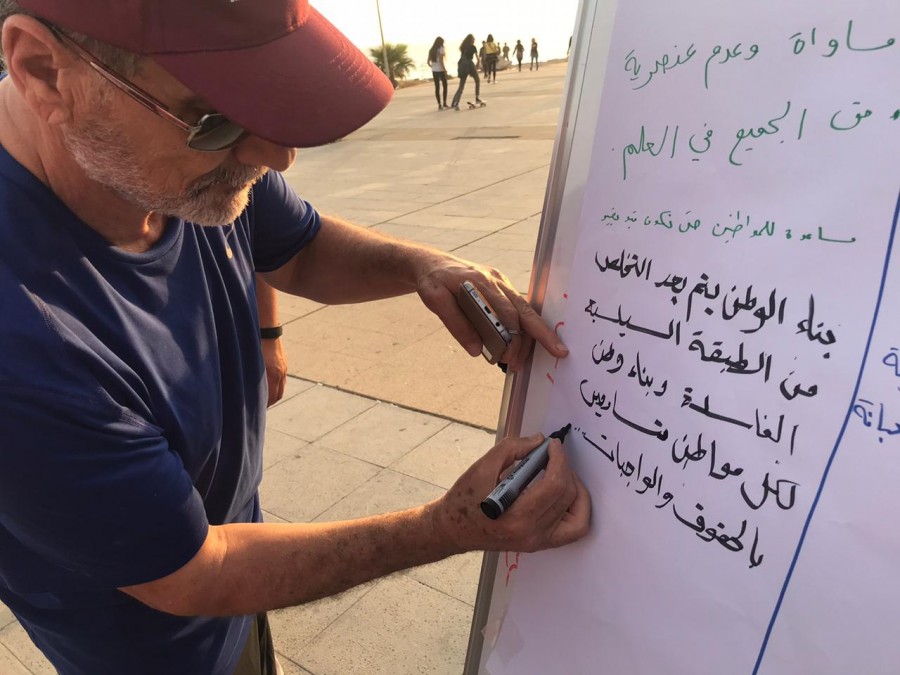 مساواة وعدم عنصرية
حق الجميع في العلم.
مساعدة للمواطنين حتى تكون
بناء الوطن يتم بعد التخلص
من الطبقة السياسية
الفاسدة وبناء وطن
لكل مواطن متساويين
بالحقوق والواجبات..